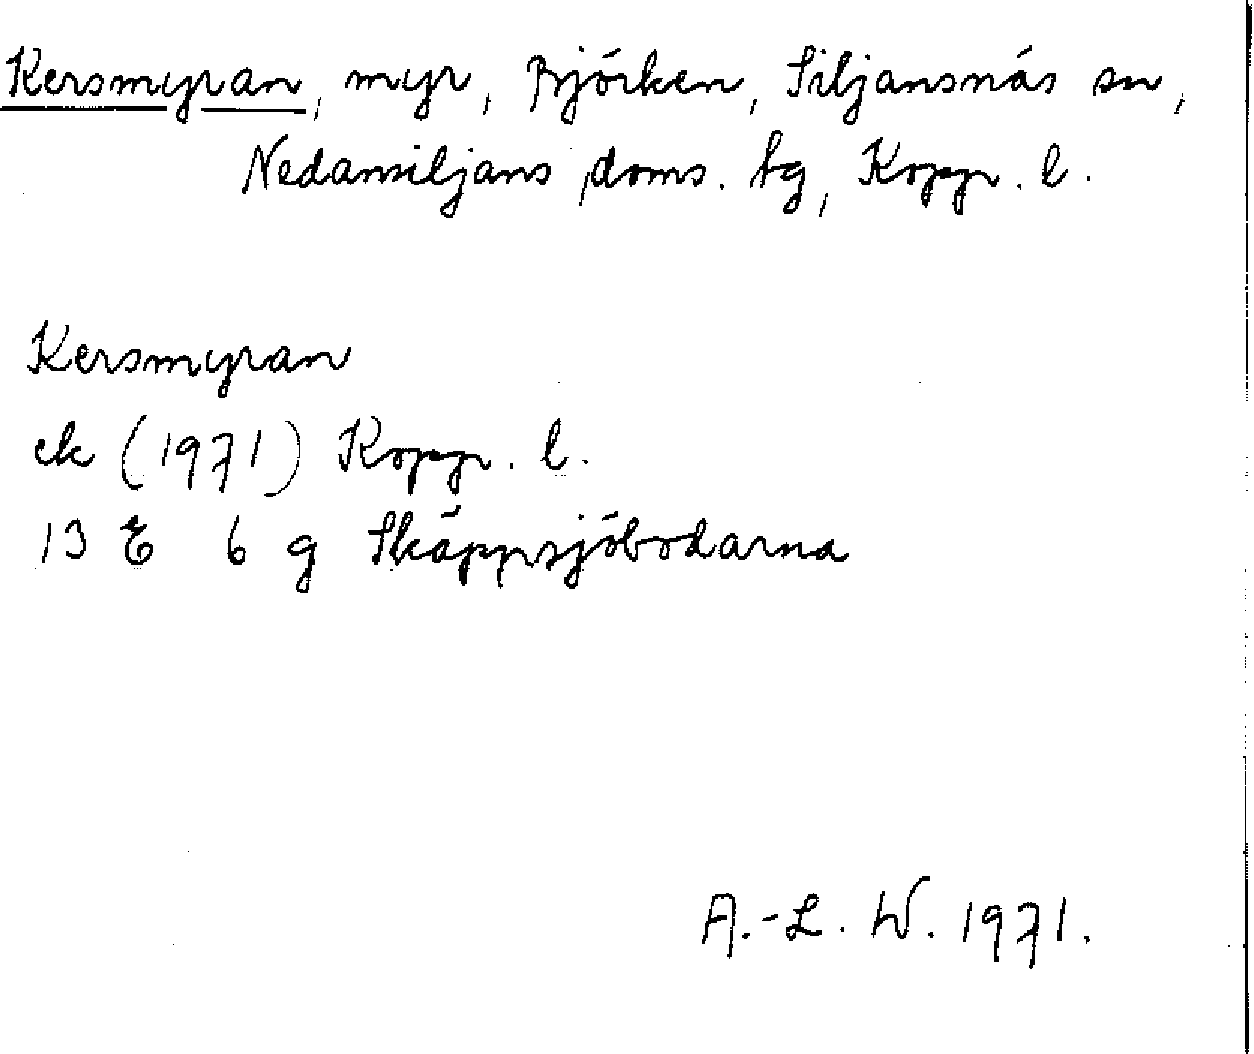 Kersmyran, myr, Björken, Siljansnäs sn,
Nedansiljans doms. tg, Koppr. l.
Kersmyran
ek (1971) Koppr. l.
13 E 6 g Skäppsjöbodarna
A.-L. W. 1971.